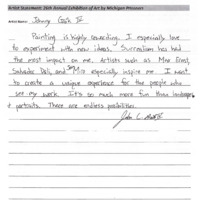 Artist Statement: 26th Annual Exhibition of Art by Michigan Prisoners
Artist Name:
Painting is highly rewarding. I especially love
to experiment with new ideas. Surrealism has had
the most impact on me. Artists such as Max Ernst,
Salvador Dali, and Miro especially inspire me. I want
to create a unique experience for the people who
see my work. It's so much more fun than landscapes
& portraits. There are endless possibilities.